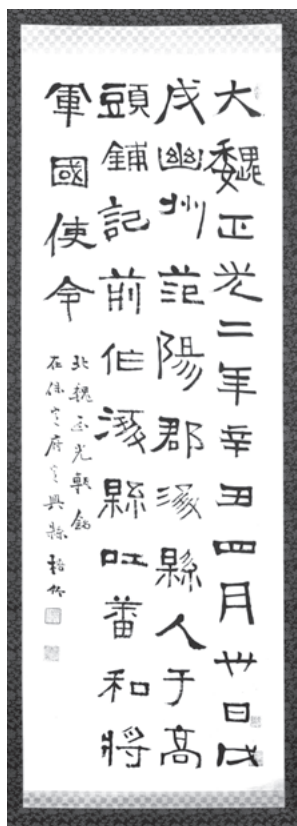 大魏正光二年辛丑四月丗日戊
戌幽州范陽郡涿縣人于高
頭鋪記前作涿縣吐蕃和將
軍國使令
北魏正光
在保定府定興縣